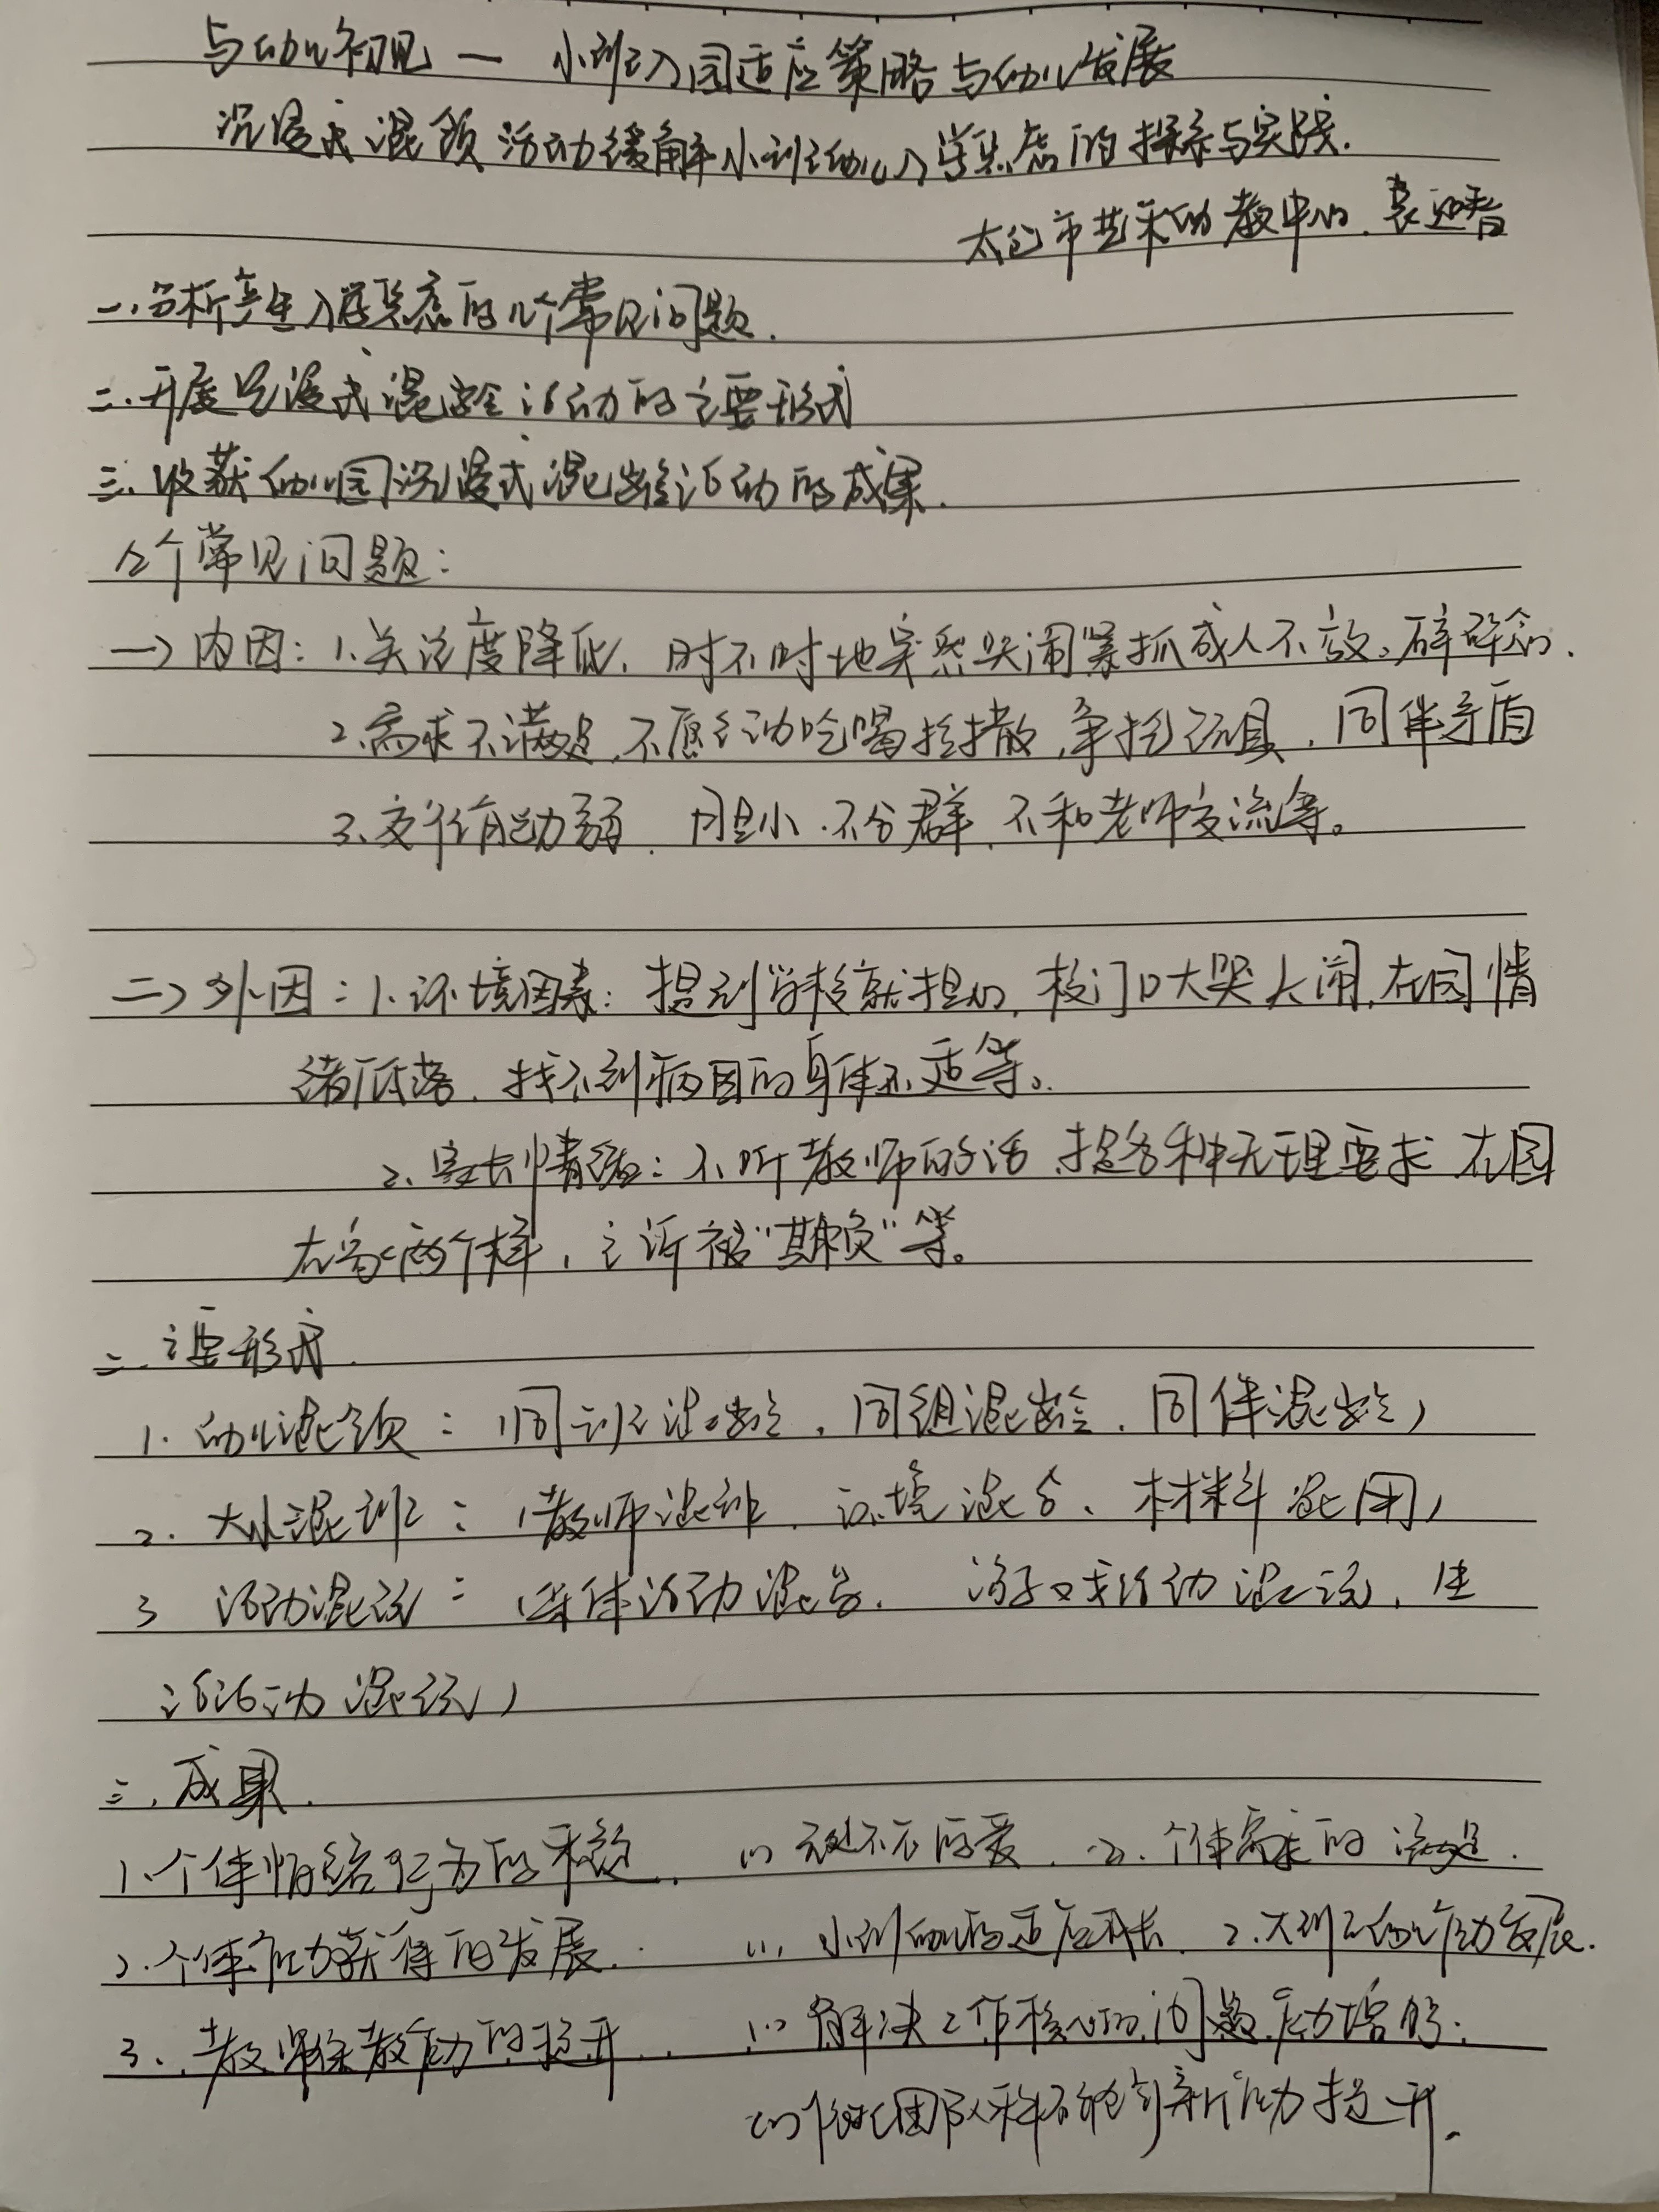 与幼儿初见 — 小班入园适应策略与幼儿发展
沉浸式混领活动缓解小班幼儿入学焦虑的探索与实践.
太仓市艺术幼教中心. 袁迎春
一.分析产生入学焦虑的几个常见问题.
二.开展沉浸式混龄活动的主要形式
三.收获幼儿园沉浸式混龄活动的成果.
个常见问题:
一> 内因: 1.关注度降低, 时不时地突然哭闹紧抓成人不放、碎碎念.
2.需求不满足, 不愿主动吃喝拉撒, 争抢玩具, 同伴矛盾
3.交往能力弱. 胆小.不合群, 不和老师交流等。
二> 外因: 1.环境因素: 提到学校就担心, 校门口大哭大闹, 在园情
绪低落. 找不到病因的身体不适等。
2.家长情绪: 不听教师的话, 提各种无理要求 在园
在家两个样, 主诉被"欺负"等。
二.主要形式.
1.幼儿混领: (同班混龄, 同组混龄, 同伴混龄)
2.大小混班: (教师混班, 环境混合、材料混用)
3 活动混玩: (集体活动混合. 游戏活动混玩, 生
活活动混玩)
三.成果.
1.个体情绪行为的平稳. (1) 无处不在的爱. (2). 个体需求的满足.
2.个体能力获得的发展. (1), 小班幼儿的适应成长. 2.大班幼儿能力发展.
3.教师保教能力的提升. (1) 解决工作核心的问题能力增强.
(2) 团队科研创新能力提升.